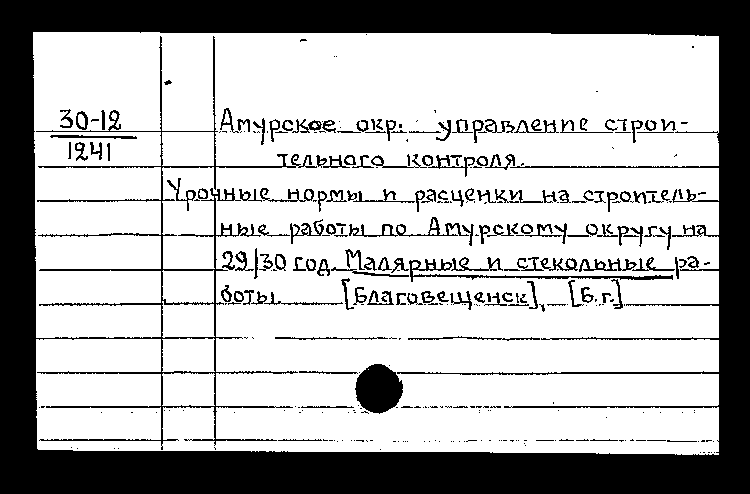 30-12
1241
Амурское окр. управление строи-
тельного контроля.
Урочные нормы и расценки на строитель-
ные работы по Амурскому округу на
29/30 год. Малярные и стекольные ра-
боты. [Благовещенск], [б.г.]